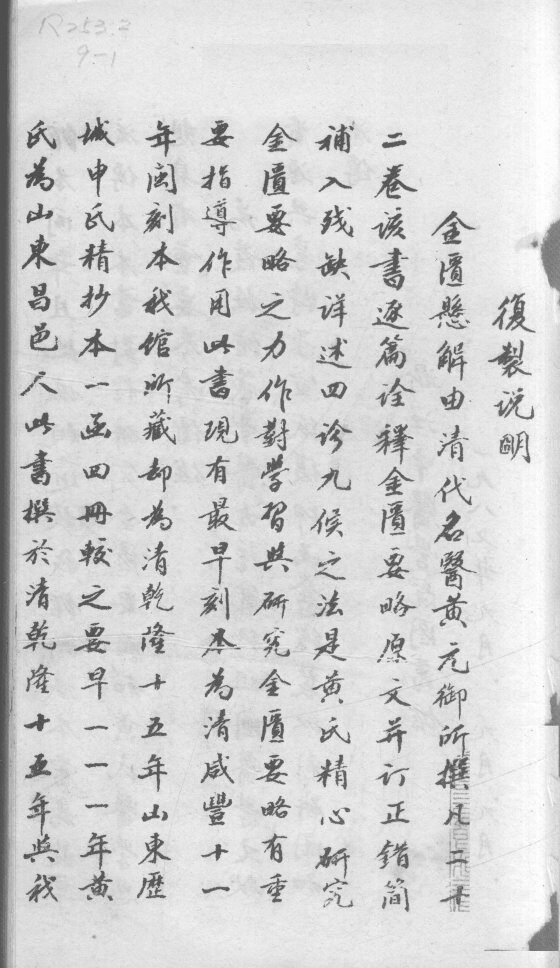 R253.2
9-1
復製说明
金匱懸解由清代名醫黄元御所撰凡二十
二卷该書逐篇诠釋金匱要略原文并订正错简
補入残缺详述四诊九候之法是黄氏精心研究
金匱要略之力作對學習與研究金匱要略有重
要指導作用此書现有最早刻本為清咸豐十一
年闽刻本我馆所藏却為清乾隆十五年山東歷
城申氏精抄本一函四冊較之要早一一一年黄
氏為山東昌邑人此書撰於清乾隆十五年與我